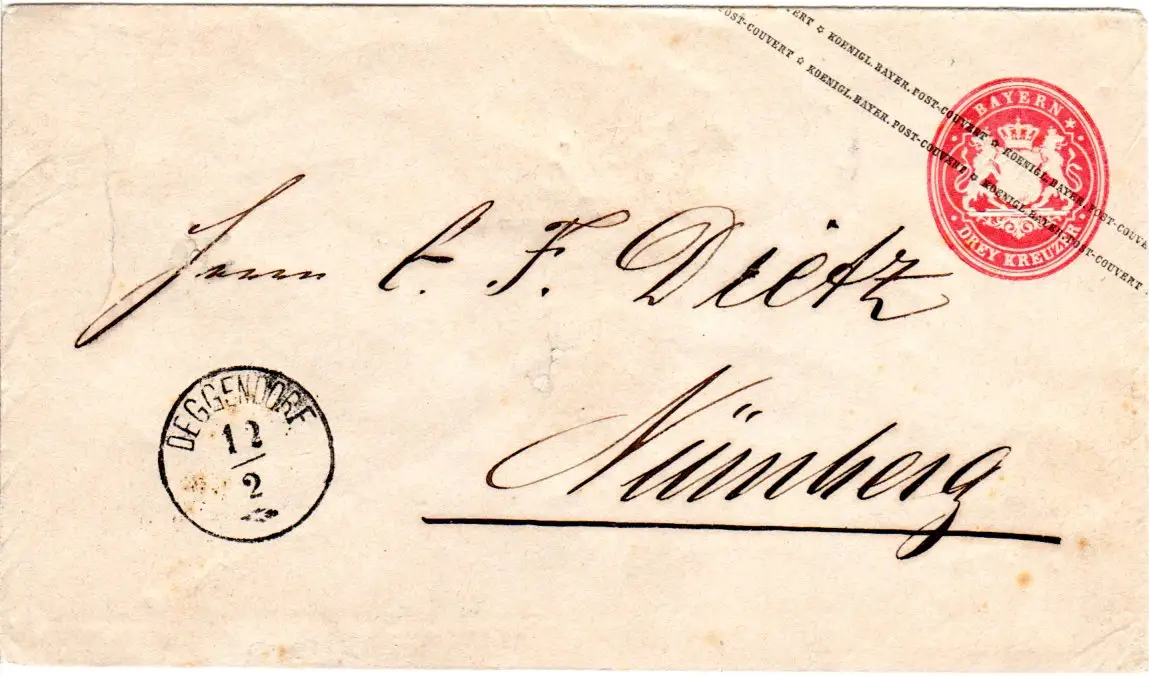 ERT ✩ KOENIGL. BAYER. POST-COUVERT ✩ KOENIGL. BAYER. POST-COUVE
OST-COUVERT ✩ KOENIGL. BAYER. POST-COUVERT ✩ KOENIGL. BAYER. POST-COUVERT
BAYERN
DREY KREUZER
Herrn C. F. Dietz
Nürnberg
DEGGENDORF
12
2